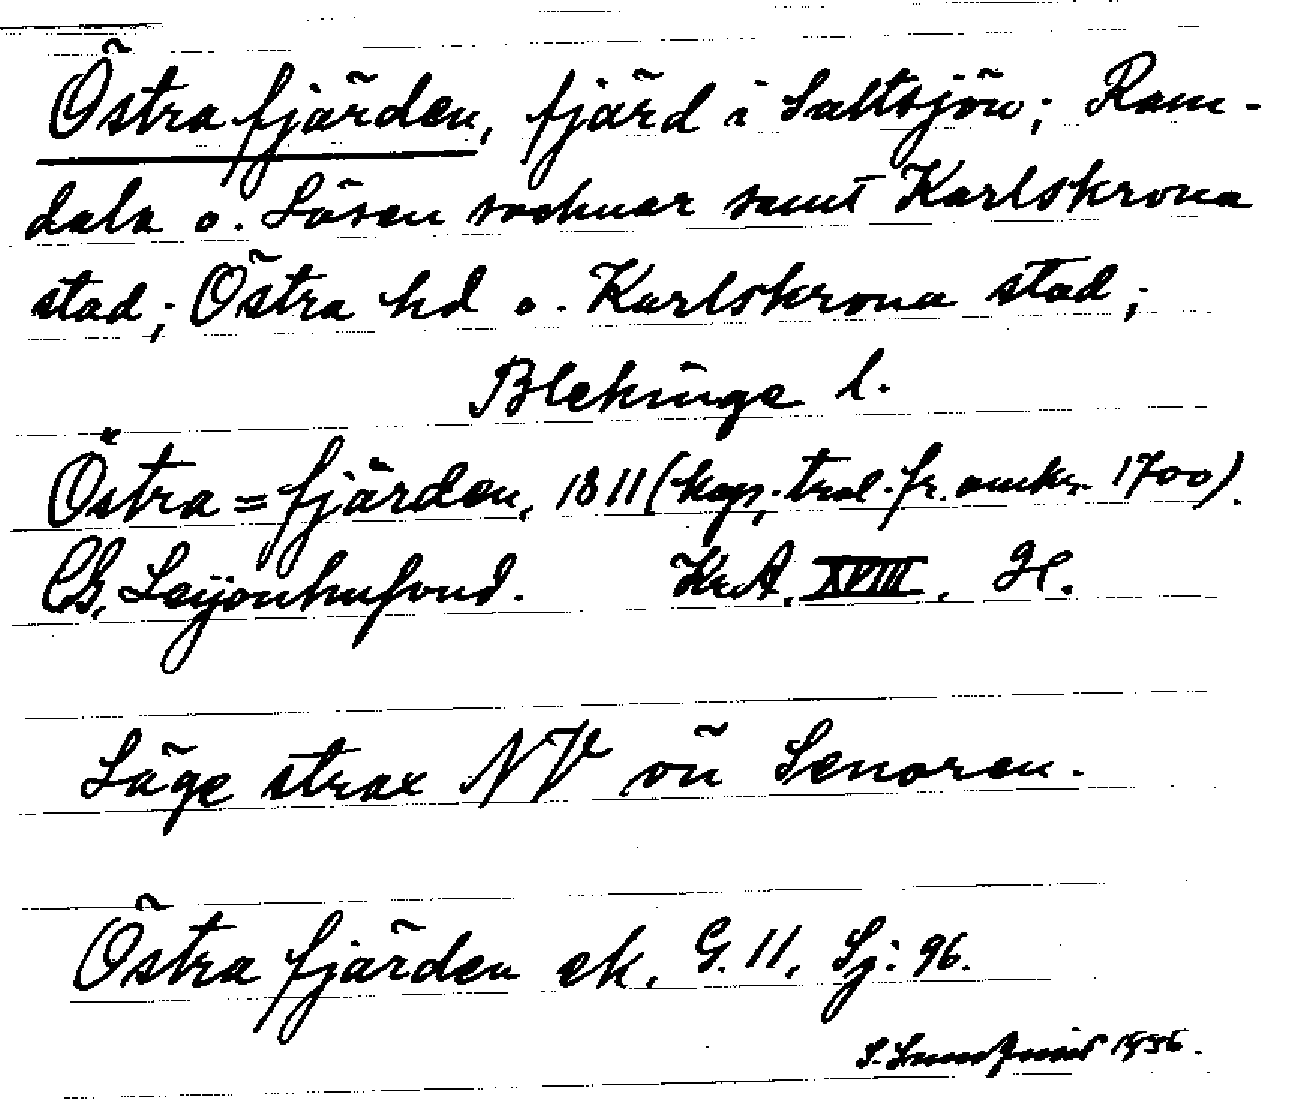 Östra fjärden, fjärd i Saltsjön; Ram-
dala o. Lösen socknar samt Karlskrona
stad; Östra hd o. Karlskrona stad;
Blekinge l.
Östra=fjärden, 1811 (kop. tral. fr. omkr. 1700).
CG. Leijonhufvud. KrA. XVIII. H.
Läge strax NV om Senoren.
Östra fjärden ek. G. 11. Sj: 96.
1936.